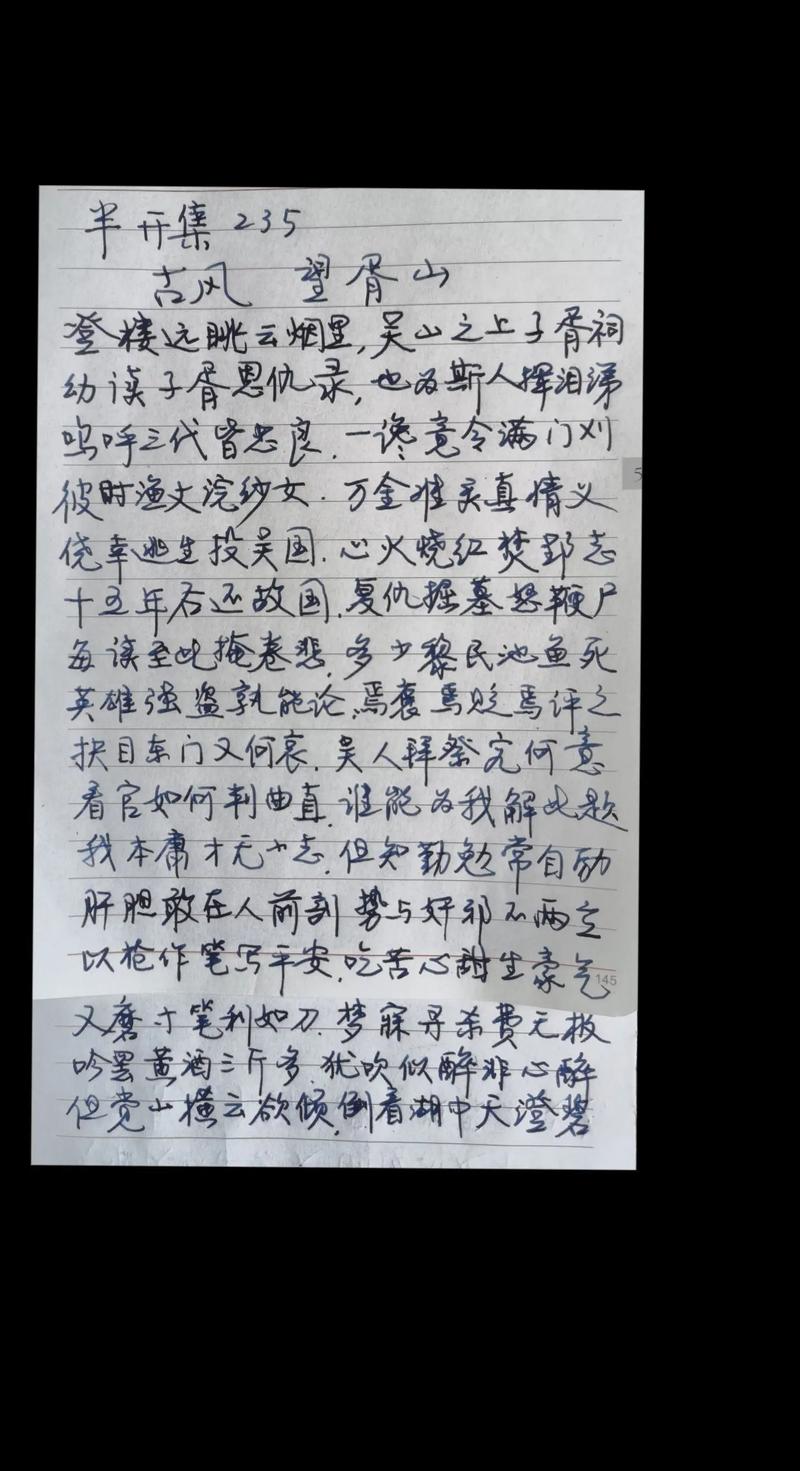 半开集 235
古风 望胥山
登楼远眺云烟里,吴山之上子胥祠
幼读子胥恩仇录,也为斯人挥泪涕
呜呼三代皆忠良.一谗竟令满门刈
彼时渔丈浣纱女.万金难买真情义
侥幸逃生投吴国.心火烧红焚郢志
十五年后还故国.复仇掘墓怒鞭尸
每读至此掩卷悲.多少黎民池鱼死
英雄强盗孰能论.焉褒焉贬焉评之
抉目东门又何哀.吴人拜祭究何意
看官如何判曲直.谁能为我解此题
我本庸才无大志.但知勤勉常自励
肝胆敢在人前剖 势与奸邪不两立
以枪作笔写平安.吃苦心甜生豪气
又磨寸笔利如刀.梦寐寻杀费无极
吟罢黄酒三斤多.犹吹似醉非心醉
但觉山横云欲倾.倒看湖中天澄碧
5
145